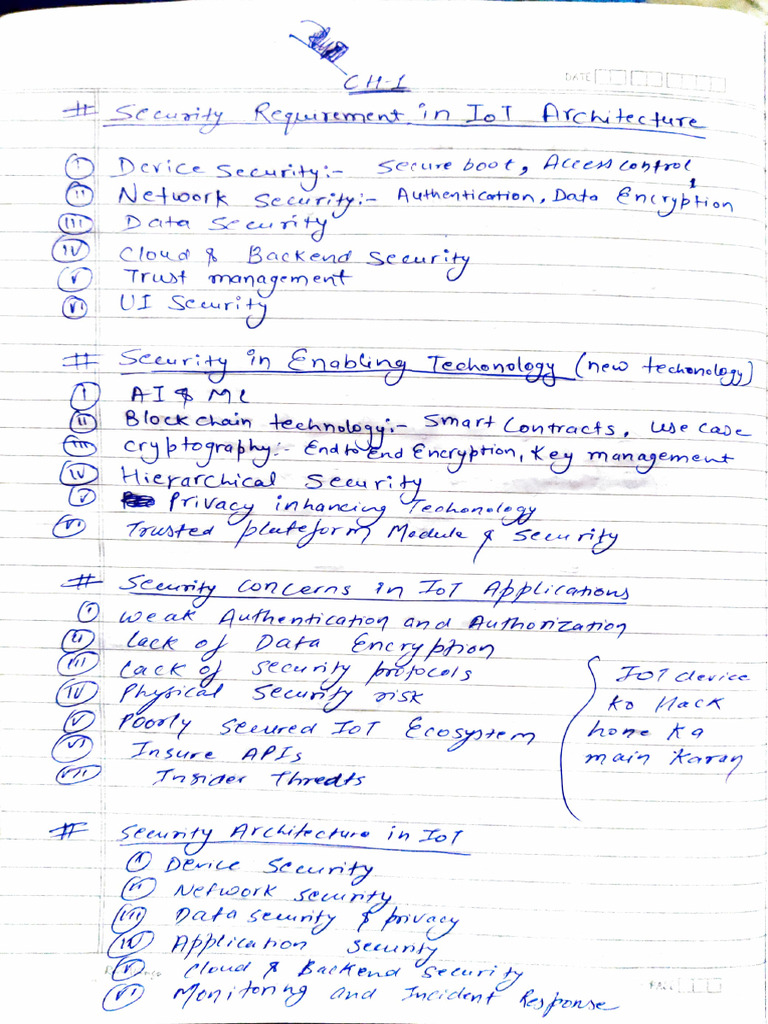 CH-1
DATE
# Security Requirement in IoT Architecture
(i) Device Security:- Secure boot, Access control
(ii) Network Security:- Authentication, Data Encryption
(iii) Data Security
(iv) Cloud & Backend Security
(v) Trust management
(vi) UI Security
# Security in Enabling Techonology (new techonology)
(i) AI & ML
(ii) Blockchain technology:- Smart Contracts, use case
(iii) Cryptography:- End to End Encryption, Key management
(iv) Hierarchical Security
(v) Privacy inhancing Techonology
(vi) Trusted plateform Module & Security
# Security Concerns in IoT Applications
(i) Weak Authentication and Authorization
(ii) Lack of Data Encryption
(iii) Lack of Security protocols
(iv) Physical Security risk
(v) Poorly Secured IoT Ecosystem
(vi) Insure APIs
(vii) Insider Threats
IOT device
ko Hack
hone ka
main Karan
# Security Architecture in IoT
(i) Device Security
(ii) Network security
(iii) Data security & privacy
(iv) Application Security
(v) Cloud & Backend Security
(vi) Monitoring and Incident Response